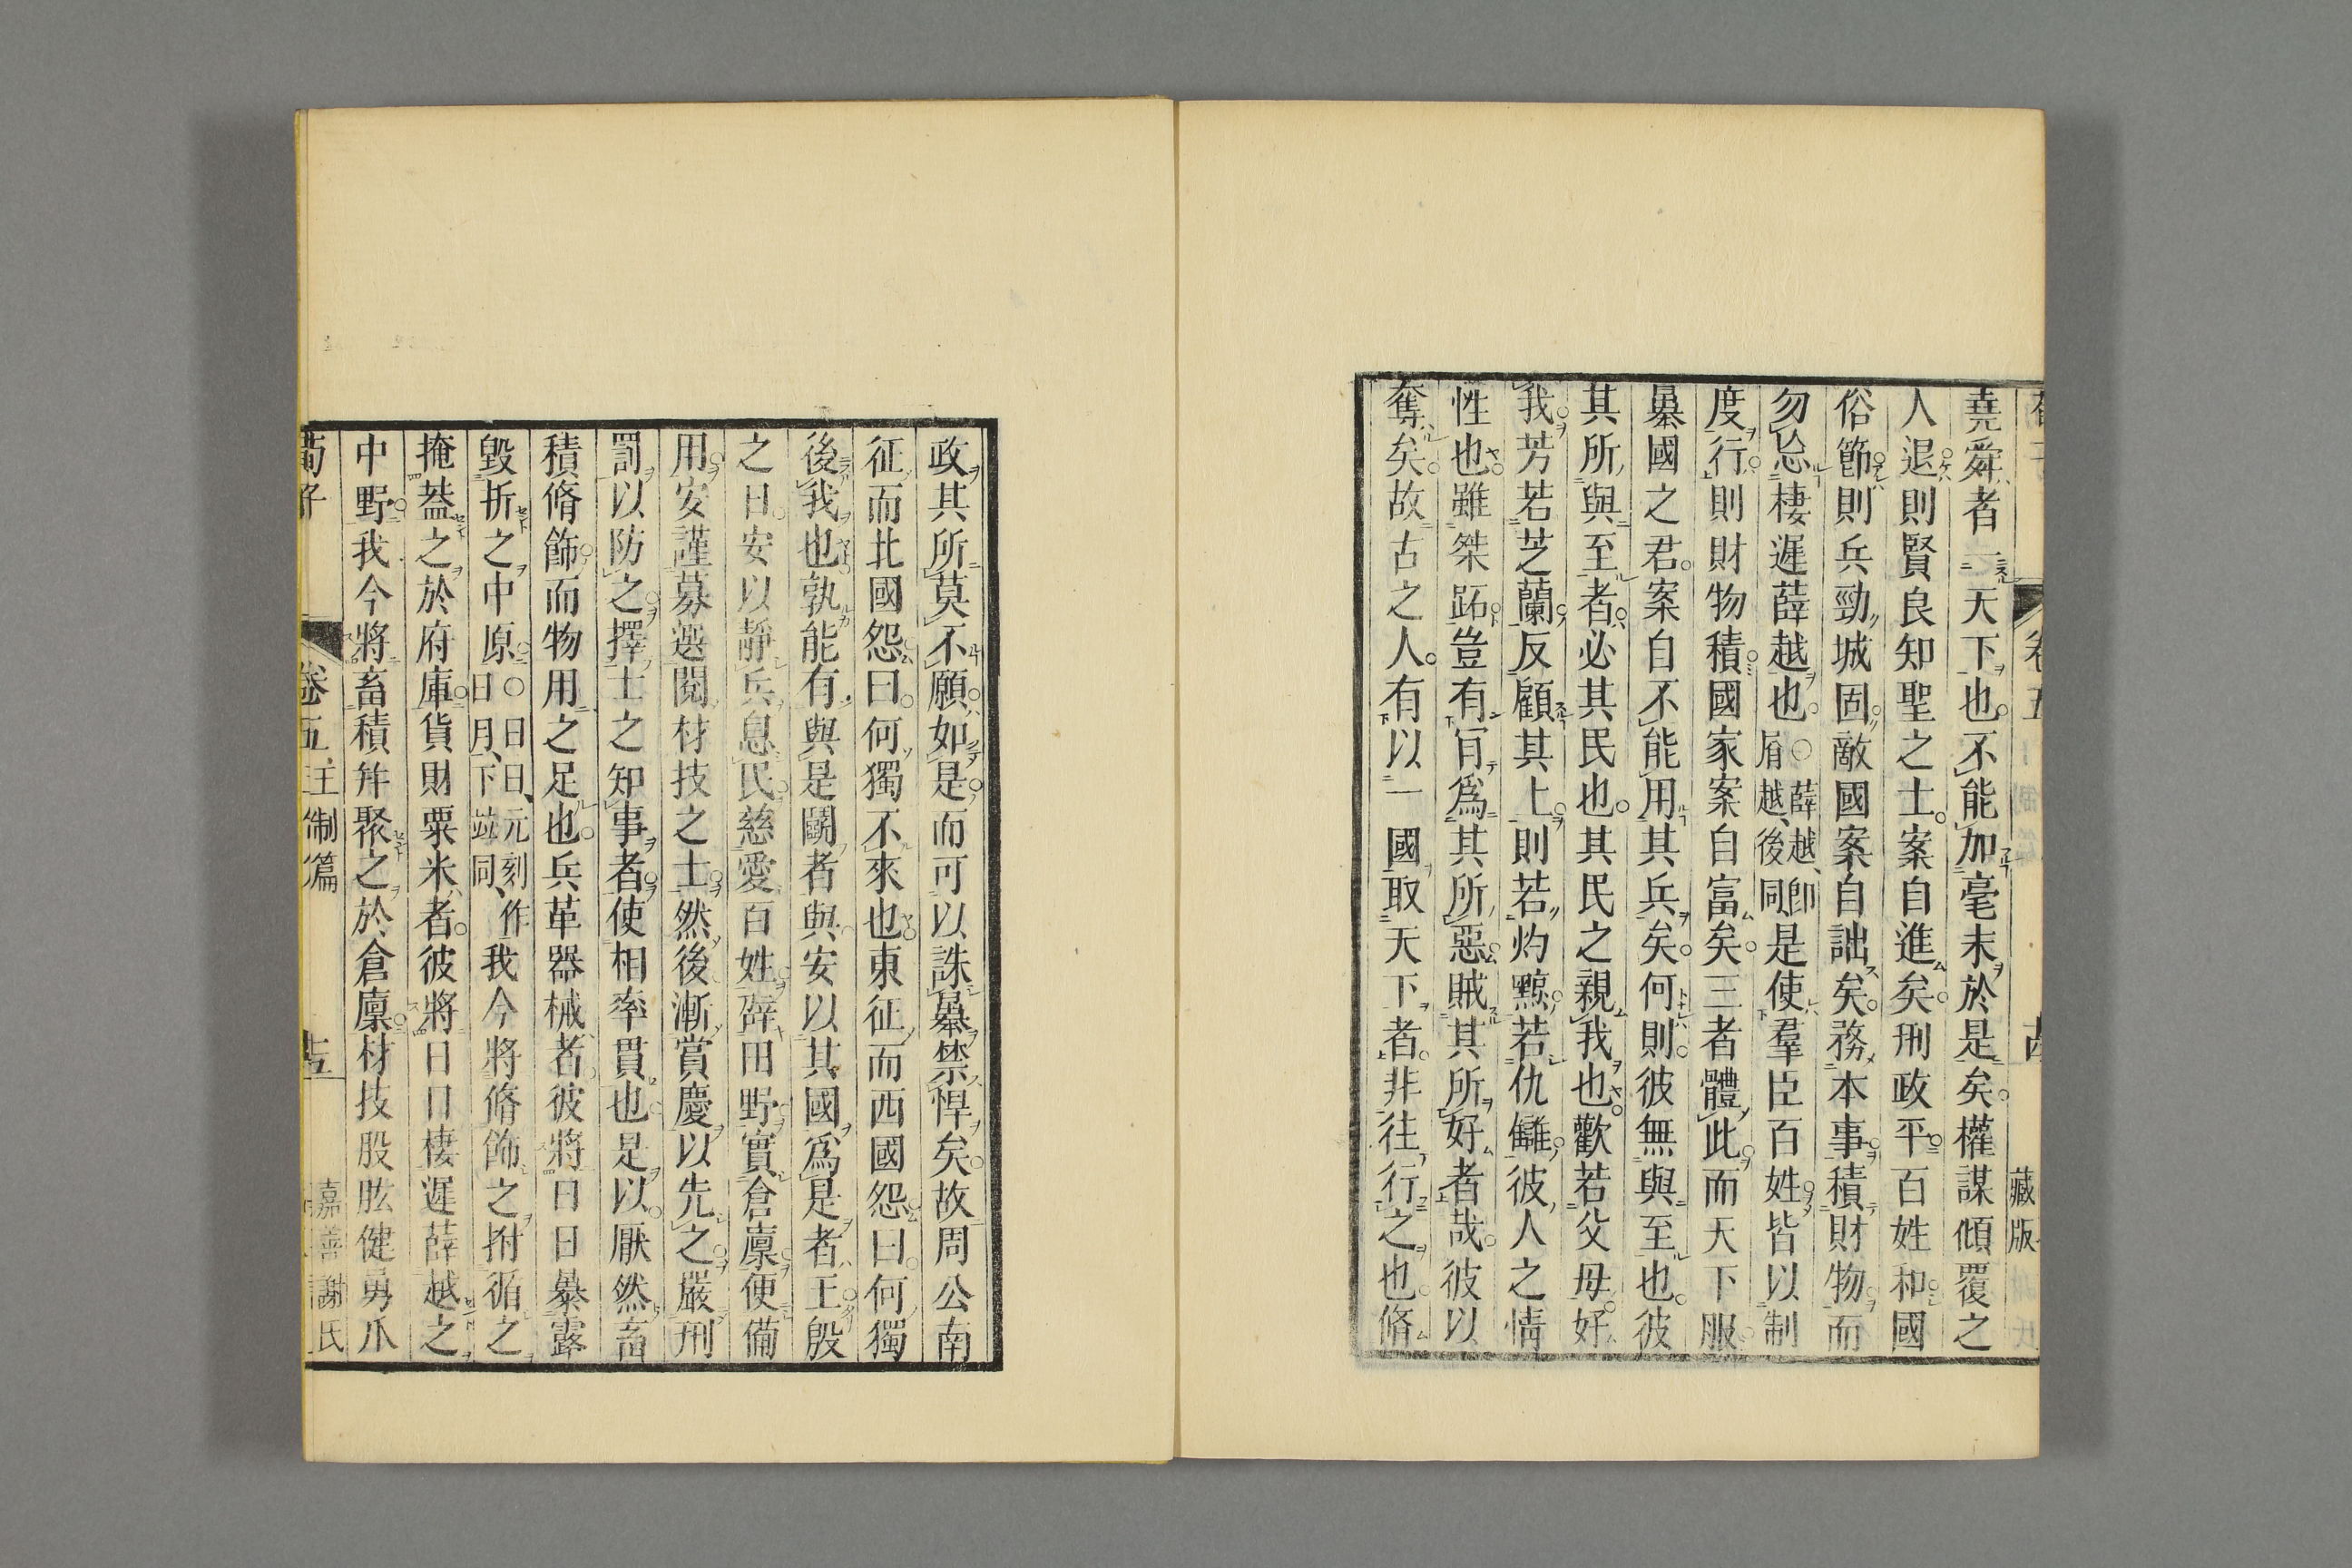 堯舜者一天下也不能加毫末於是矣權謀傾覆之
人退則賢良知聖之士案自進矣刑政平百姓和國
俗節則兵勁城固敵國案自詘矣務本事積財物而
勿忘棲遲薛越也○薛越、卽屑越、後同、是使羣臣百姓皆以制
度行則財物積國家案自富矣三者體此而天下服
暴國之君案自不能用其兵矣何則彼無與至也彼
其所與至者必其民也其民之親我也歡若父母好
我芳若芝蘭反顧其上則若灼黥若仇讎彼人之情
性也雖桀跖豈有肎爲其所惡賊其所好者哉彼以
奪矣故古之人有以一國取天下者非往行之也脩
藏版
政其所莫不願如是而可以誅暴禁悍矣故周公南
征而北國怨曰何獨不來也東征而西國怨曰何獨
後我也孰能有與是鬭者與安以其國爲是者王殷
之日安以靜兵息民慈愛百姓辟田野實倉廩便備
用安謹募選閱材技之士然後漸賞慶以先之嚴刑
罰以防之擇士之知事者使相率貫也是以厭然畜
積脩飾而物用之足也兵革器械者彼將日日暴露
毀折之中原○日日、元刻作日月、下竝同、我今將脩飾之拊循之
掩葢之於府庫貨財粟米者彼將日日棲遲薛越之
中野我今將畜積幷聚之於倉廩材技股肱健勇爪
荀子 卷五 王制篇 十五 嘉善謝氏